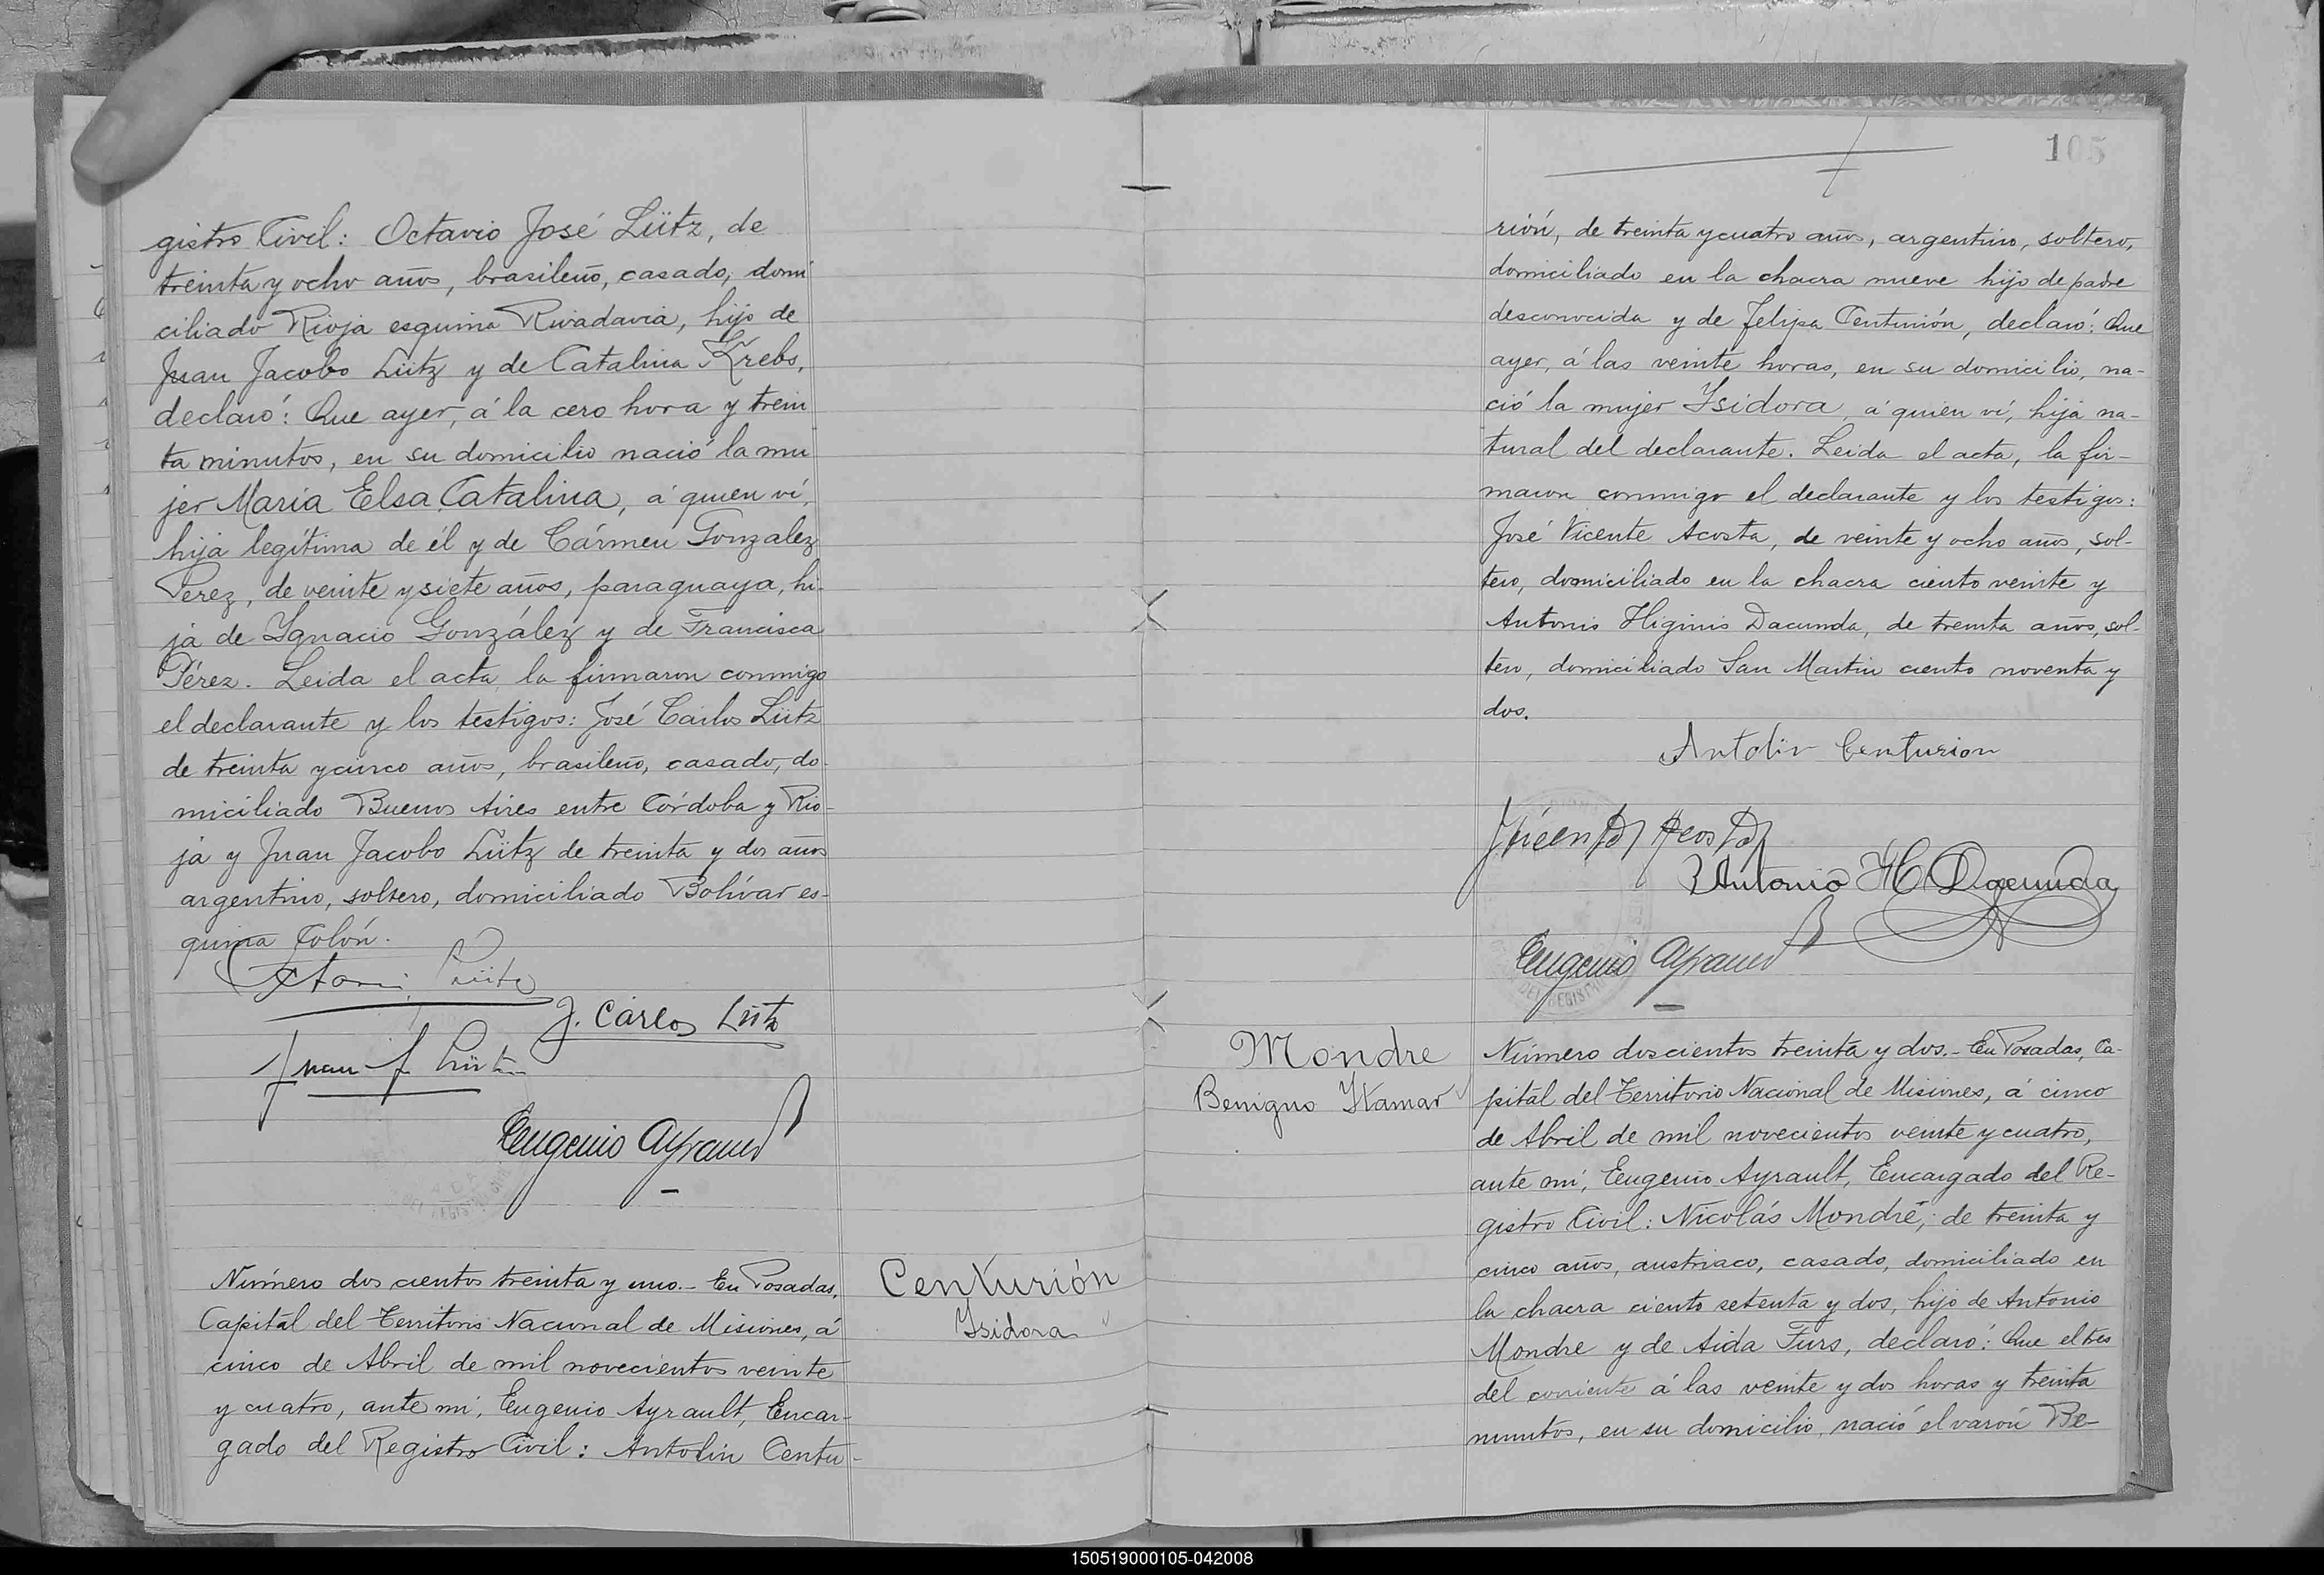 gistro Civil: Octavio José Lütz, de
treinta y ocho años, brasileño, casado, domi
ciliado Rioja esquina Rivadavia, hijo de
Juan Jacobo Lütz y de Catalina Krebs,
declaró: Que ayer, á la cero hora y trein
ta minutos, en su domicilio nació la mu
jer María Elsa Catalina, á quien ví,
hija legítima de él y de Cármen Gonzalez
Perez, de veinte y siete años, paraguaya, hi-
ja de Ygnacio González y de Francisca
Pérez. Leida el acta, la firmaron conmigo
el declarante y los testigos: José Carlos Lütz
de treinta y cinco años, brasileño, casado, do-
miciliado Buenos Aires entre Córdoba y Rio-
ja y Juan Jacobo Lütz de treinta y dos años
argentino, soltero, domiciliado Bolívar es-
quina Colón.
J. Carlos Lütz
Juan J. Lütz
Eugenio Ayrault
Número dos cientos treinta y uno.- En Posadas,
Capital del Territorio Nacional de Misiones, á
cinco de Abril de mil novecientos veinte
y cuatro, ante mí, Eugenio Ayrault, Encar-
gado del Registro Civil: Antolín Centu-
Centurión
Ysidora
105
rión, de treinta y cuatro años, argentino, soltero,
domiciliado en la chacra nueve hijo de padre
desconocida y de Felipa Centurión, declaró: Que
ayer, á las veinte horas, en su domicilio, na-
ció la mujer Ysidora, á quien ví, hija na-
tural del declarante. Leida el acta, la fir-
maron conmigo el declarante y los testigos:
José Vicente Acosta, de veinte y ocho años, sol-
tero, domiciliado en la chacra ciento veinte y
Antonio Higinio Dacunda, de treinta años, sol-
tero, domiciliado San Martin ciento noventa y
dos.
Antolin Centurion
J Vicente Acosta
Antonio H. Dacunda
Eugenio Ayrault
Mondre
Benigno Ytamar
Número doscientos treinta y dos.- En Posadas, Ca-
pital del Territorio Nacional de Misiones, á cinco
de Abril de mil novecientos veinte y cuatro,
ante mí, Eugenio Ayrault, Encargado del Re-
gistro Civil: Nicolás Mondré, de treinta y
cinco años, austriaco, casado, domiciliado en
la chacra ciento setenta y dos, hijo de Antonio
Mondre y de Aida Furs, declaró: Que el tres
del corriente á las veinte y dos horas y treinta
minutos, en su domicilio, nació el varón Be-
150519000105-042008